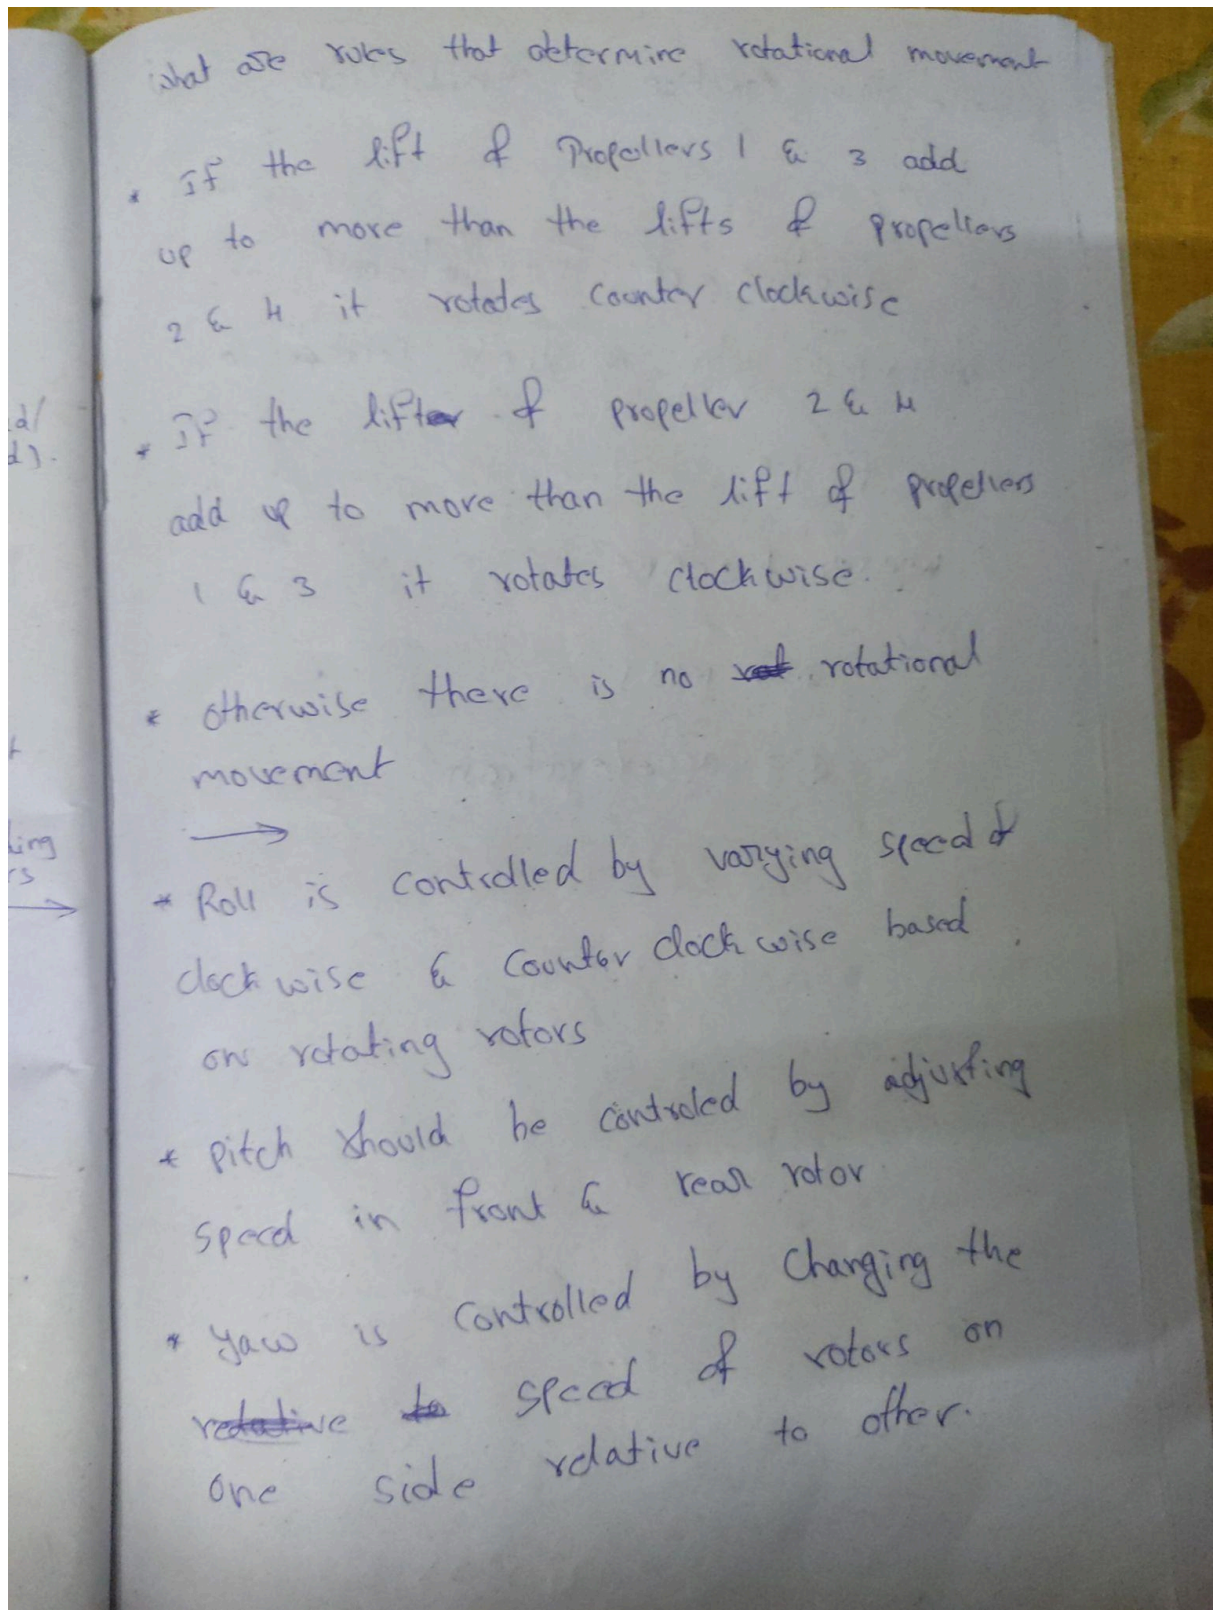 what are rules that determine rotational movement
* If the lift of Propellers 1 & 3 add
up to more than the lifts of propellers
2 & 4 it rotates Counter clockwise
* If the lift of propeller 2 & 4
add up to more than the lift of propellers
1 & 3 it rotates clockwise.
* otherwise there is no rotational
movement
→
* Roll is controlled by varying speed of
clock wise & Counter clock wise based
on rotating rotors
* pitch should be controled by adjusting
speed in front & rear rotor
* yaw is Controlled by Changing the
relative to speed of rotors on
one side relative to other.
d/
d).
ling
rs
→